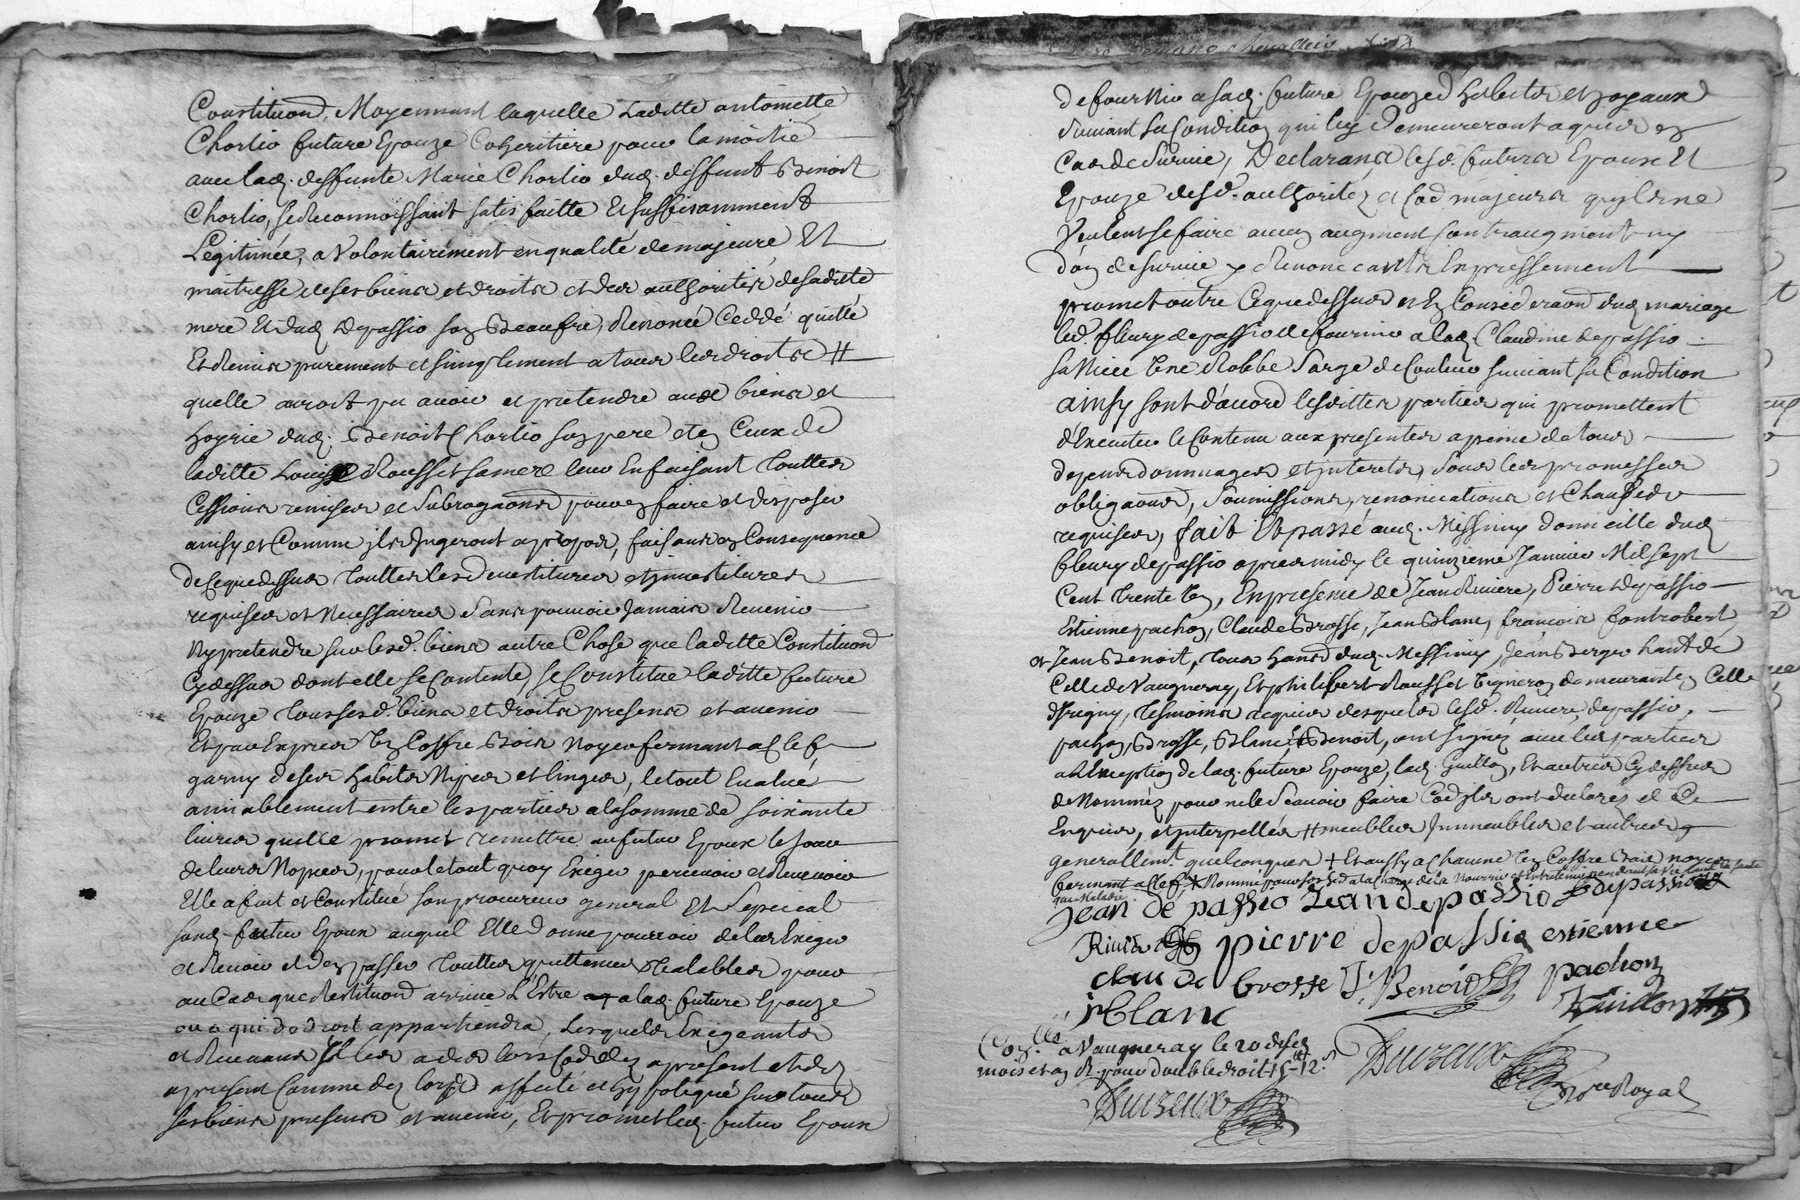 Constituon, Moyennant laquelle Laditte antoinette
Chorlio future Epouze Coheritiere pour la moitié
avec lad. deffunte Marie Chorlio dud. deffunt Benoit
Chorlio, se Reconnoissant satisfaitte Et suffisamment
Legitimée, a Volontairement en qualité de majeure Et
maitresse de ses biens et droits et des authorités de saditte
mere Et dud. Depassio son Beaufre, Renoncé Ceddé quitté
Et Remis purement et simplement a tous les droits #
quelle auroit pu avoir et pretendre aux biens et
hoyrie dud. Benoit Chorlio son pere et en Ceux de
laditte Louise Rousset sa mere leur En faisant touttes
Cessions remises et Subrogaons pour en faire et disposer
ainsy et Comme ils Jugeront a propos, faisans en Consequence
de Ceque dessus touttes les devestitures et jnvestitures
requises et Necessaires sans pouvoir Jamais Revenir
Ny pretendre sur lesd. biens autre Chose que laditte Constituon
Cy dessus dont elle se Contente, se Constitue laditte future
Epouze tous ses d. biens et droits presens et avenir
Et par Exprès un Coffre Bois Noyer fermant a Clef
garny de ses habits Nipes et linges, le tout Evalué
amiablement entre les parties a la somme de soixante
livres quelle promet remettre au futur Epoux le Jour
de leurs Nopces, pour le tout quoy Exiger percevoir et Recevoir
Elle a fait et Constitué son procureur general Et Special
sond. futur Epoux auquel Elle donne pouvoir de les Exiger
et Recevoir et d'en passer touttes quittances Valables pour
au Cas que Restituon arrive L'Estre a lad. future Epouze
ou a qui de droit appartiendra, Lesquels Exigeant
a present Comme des lors affecté et hypotequé sur tous
ses biens presens et avenir, Et promet led. futur Epoux
de fournir a sad. future Epouze d'habits et Joyaux
suivant sa Condition qui luy demeureront aquis en
Cas de Survie, Declarans lesd. futurs Epoux Et
Epouze desd. authoritez et Cod majeurs quils ne
Veulent se faire aucun augment Contraugment ny
don de survie y Renoncants Expressement
promet outre Ceque dessus et En Consideraon dud. mariage
led. fleury depassio de fournir a lad. Claudine depassio
sa Niece Une Robbe Sarge de Couleur suivant sa Condition
ainsy sont d'acord lesdittes parties qui promettent
d'Executer le Contenu aux presentes a peine de tous
depens dommages et jnterets, sous les promesses
obligaons, soumissions, renonciations et Clauses
requises, fait Et passé aud. Messimy domicille dud.
fleury depassio apres midy le quinzieme Janvier Mil Sept
Cent trente Un, En presence de Jean Riviere, Pierre Depassio
Estienne pachon, Claude Brosse, Jean Blanc, françois fontrobert
et Jean Benoit, tous habts dud. Messimy, Jean Berger habt de
Celle de Vaugneray, Et philibert Rousset Vigneron demeurant en Celle
d'Irigny, tesmoins requis desquels lesd. Riviere, depassio,
pachon, Brosse, Blanc, et Benoit, ont signez avec les parties
a L'Exception de lad. future Epouze, lad. Guillon, Et autres Cy dessus
de Nommés pour ne le Scavoir faire Cod ils ont declarés de Ce
Enquis, et jnterpellés # meubles Jmmeubles et autres
generallemt. quelconques + Et aussy a chacune un Coffre Bois noyer
fermant a Clef
Jean de passio Jean depassio F depassio
Riviere pierre depassio estienne
claude brosse J Benoit pachon
J Blanc Guillon
Con.lé a Vaugneray le 20 desd.
mois et an R. pour double droit 15lt-12s
Duvzeux
Duvzeux
Nore Royal